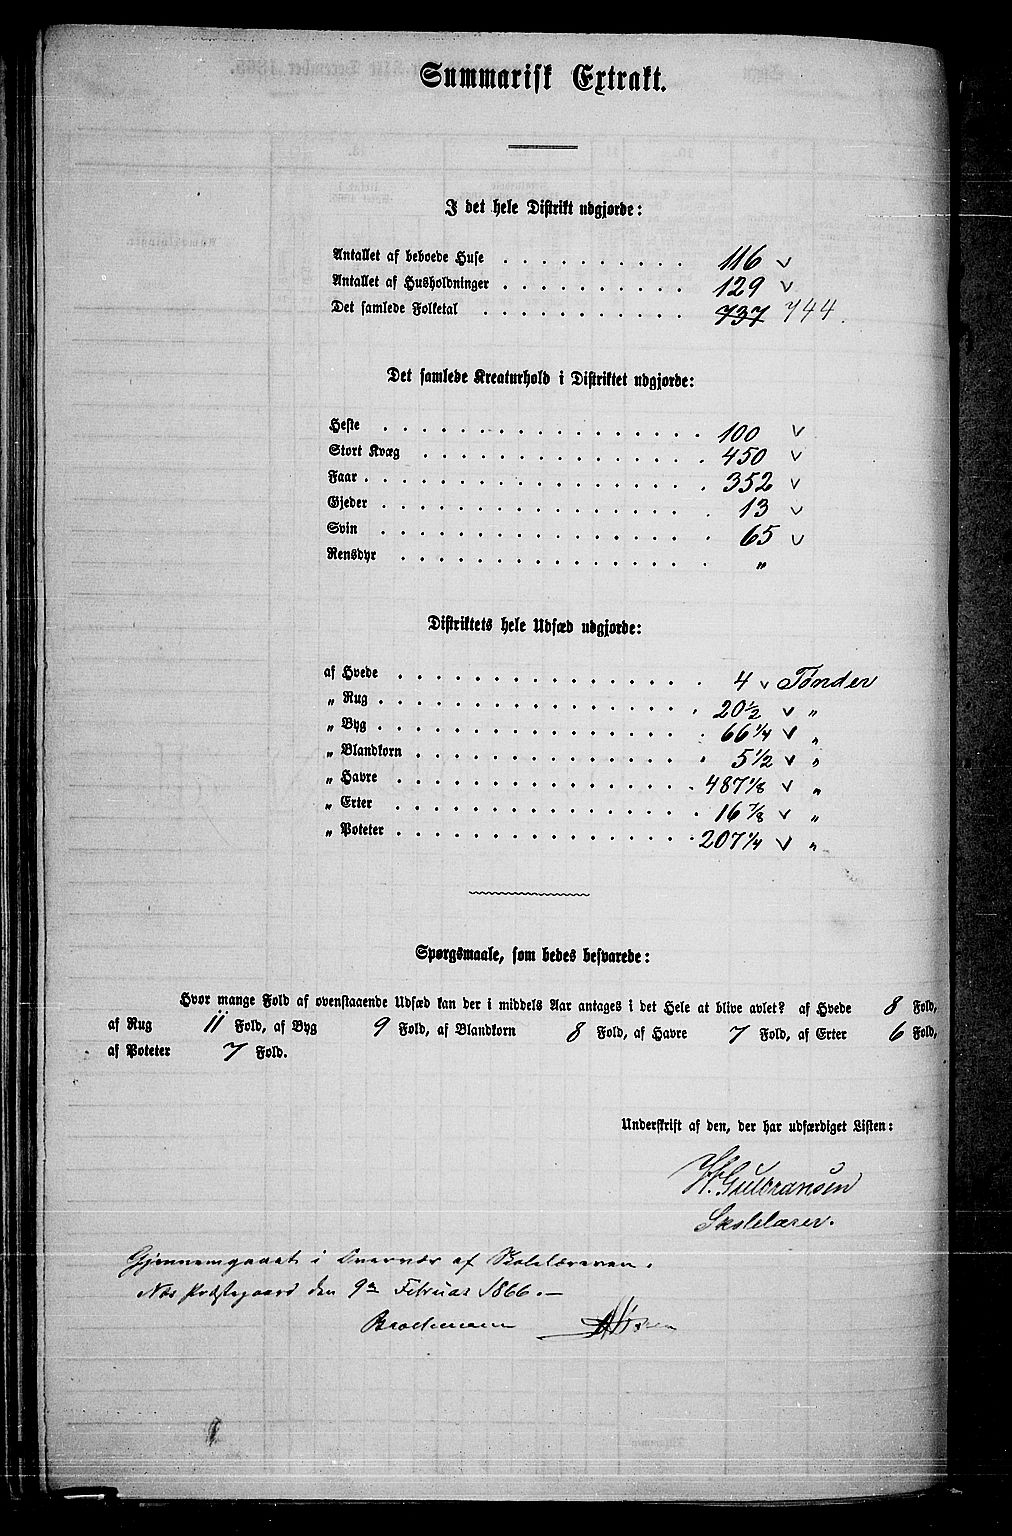 Summarisk Extrakt.
I det hele Distrikt udgjorde:
Antallet af beboede Huse . . . . . . . . . . 116 v
Antallet af Husholdninger . . . . . . . . . . 129 v
Det samlede Folketal . . . . . . . . . . . 737 744.
Det samlede Kreaturhold i Distriktet udgjorde:
Heste . . . . . . . . . . . . . . . . . 100 v
Stort Kvæg . . . . . . . . . . . . . . . 450 v
Faar . . . . . . . . . . . . . . . . . . 352 v
Gjeder . . . . . . . . . . . . . . . . . 13 v
Svin . . . . . . . . . . . . . . . . . . 65 v
Rensdyr . . . . . . . . . . . . . . . . „
Distriktets hele Udsæd udgjorde:
af Hvede . . . . . . . . . . . . . . . . 4 v Tønder
„ Rug . . . . . . . . . . . . . . . . . 20 ½ v „
„ Byg . . . . . . . . . . . . . . . . . 66 ¼ v „
„ Blandkorn . . . . . . . . . . . . . . . 5 ½ v „
„ Havre . . . . . . . . . . . . . . . . 487 ⅛ v „
„ Erter . . . . . . . . . . . . . . . . 16 ⅞ v „
„ Poteter . . . . . . . . . . . . . . . . 207 ¼ v „
Spørgsmaale, som bedes besvarede:
Hvor mange Fold af ovenstaaende Udsæd kan der i middels Aar antages i det Hele at blive avlet? af Hvede 8 Fold,
af Rug 11 Fold, af Byg 9 Fold, af Blandkorn 8 Fold, af Havre 7 Fold, af Erter 6 Fold,
af Poteter 7 Fold.
Underskrift af den, der har udfærdiget Listen:
H. Gulbransen
Skolelærer.
Gjennemgaaet i Overvær af Skolelæreren.
Næs Præstegaard den 9de Februar 1866. —